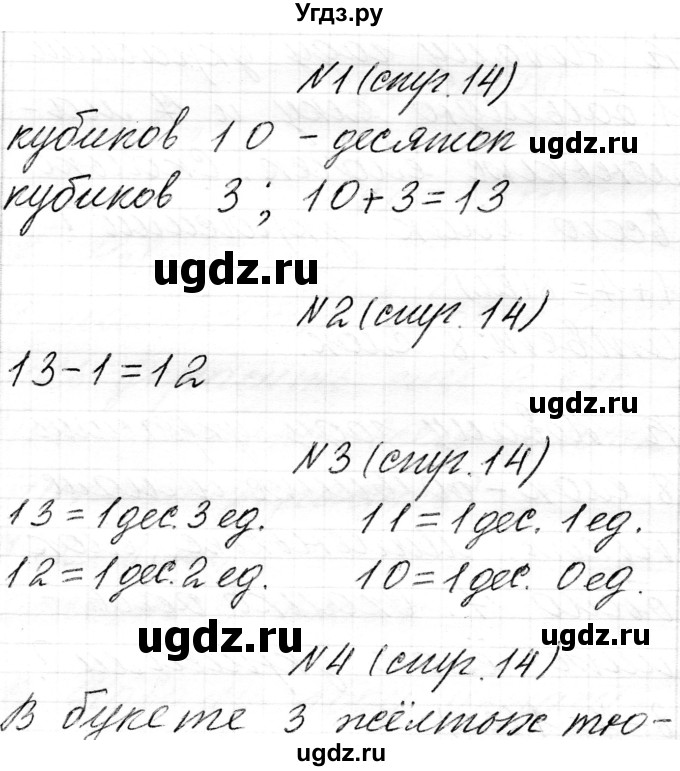 Угдз.ру
N1 (стр. 14)
кубиков 10 - десяток
ugdz.ru
кубиков 3; 10+3=13
ugdz.ru
N2 (стр. 14)
13-1=12
ugdz.ru
N3 (стр. 14)
13=1дес. 3 ед. 11=1дес. 1ед.
12=1дес. 2 ед. 10=1дес. 0ед.
ugdz.ru ugdz.ru
N4 (стр. 14)
В букете 3 жёлтых тю-
ugdz.ru